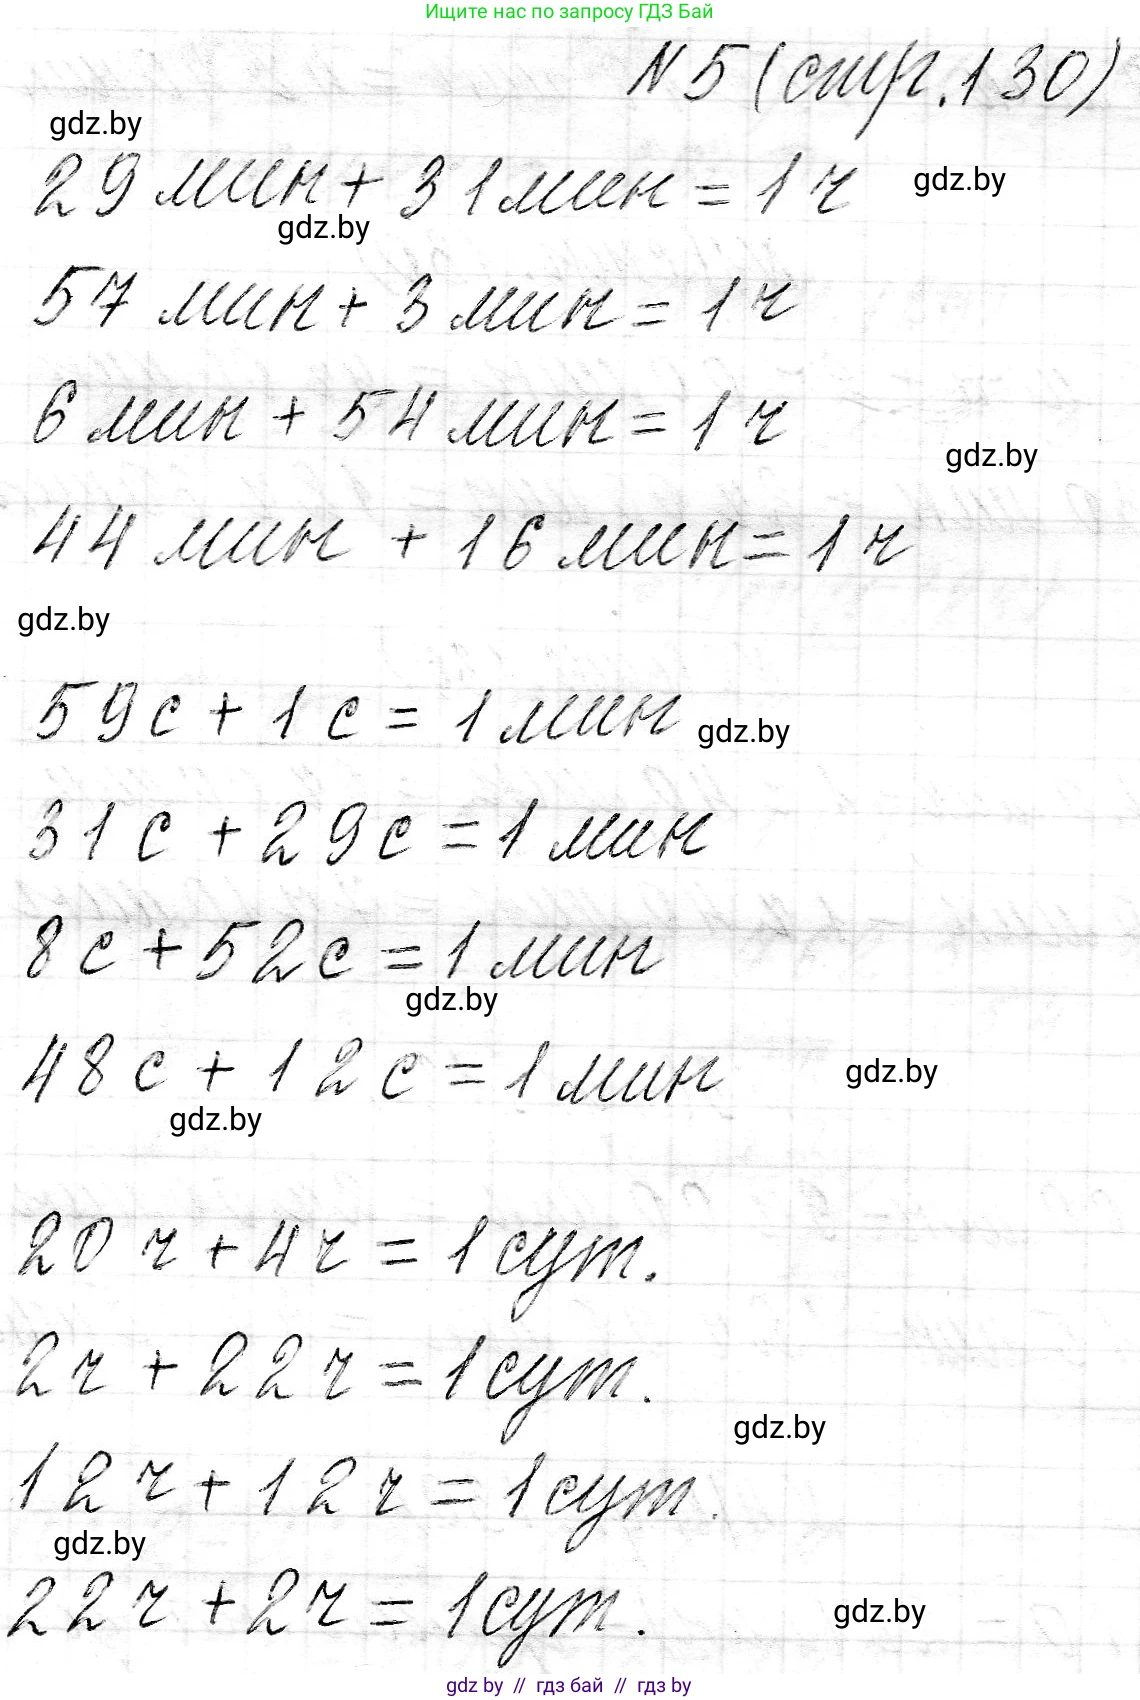 Ищите нас по запросу ГДЗ Бай
N 5 (стр. 130)
gdz.by
29 мин + 31 мин = 1 ч
gdz.by
gdz.by
57 мин + 3 мин = 1 ч
6 мин + 54 мин = 1 ч
gdz.by
44 мин + 16 мин = 1 ч
gdz.by
59 с + 1 с = 1 мин
gdz.by
31 с + 29 с = 1 мин
8 с + 52 с = 1 мин
gdz.by
48 с + 12 с = 1 мин
gdz.by
gdz.by
20 ч + 4 ч = 1 сут.
2 ч + 22 ч = 1 сут.
gdz.by
12 ч + 12 ч = 1 сут.
gdz.by
22 ч + 2 ч = 1 сут.
gdz.by
gdz by // гдз бай // gdz.by